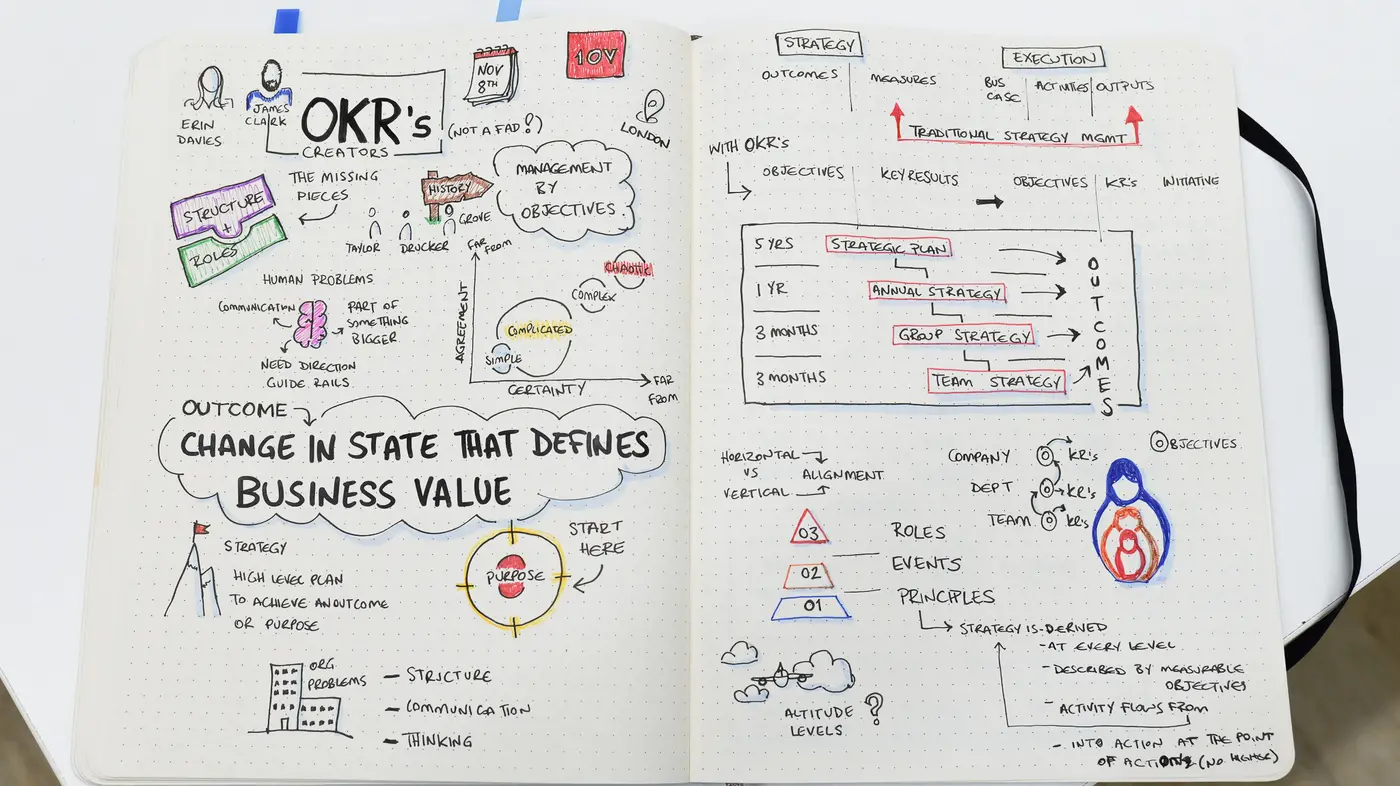 ERIN
DAVIES
JAMES
CLARK
OKR's
CREATORS
(NOT A FAD!)
NOV
8TH
10V
LONDON
THE MISSING
PIECES
STRUCTURE
+
ROLES
HISTORY
TAYLOR
DRUCKER
GROVE
MANAGEMENT
BY
OBJECTIVES.
HUMAN PROBLEMS
COMMUNICATION
PART OF
SOMETHING
BIGGER
NEED DIRECTION
GUIDE RAILS
FAR
FROM
AGREEMENT
CHAOTIC
COMPLEX
COMPLICATED
SIMPLE
CERTAINTY
FAR
FROM
OUTCOME
CHANGE IN STATE THAT DEFINES
BUSINESS VALUE
STRATEGY
HIGH LEVEL PLAN
TO ACHIEVE AN OUTCOME
OR PURPOSE
PURPOSE
START
HERE
ORG
PROBLEMS
- STRUCTURE
- COMMUNICATION
- THINKING
STRATEGY
EXECUTION
OUTCOMES
MEASURES
BUS
CASE
ACTIVITIES
OUTPUTS
TRADITIONAL STRATEGY MGMT
WITH OKR's
OBJECTIVES
KEY RESULTS
OBJECTIVES
KR's
INITIATIVE
5 YRS
STRATEGIC PLAN
1 YR
ANNUAL STRATEGY
3 MONTHS
GROUP STRATEGY
3 MONTHS
TEAM STRATEGY
OUTCOMES
HORIZONTAL
VS
VERTICAL
ALIGNMENT
COMPANY
KR's
DEPT
KR's
TEAM
KR's
OBJECTIVES
03
ROLES
02
EVENTS
01
PRINCIPLES
STRATEGY IS DERIVED
- AT EVERY LEVEL
- DESCRIBED BY MEASURABLE
OBJECTIVES
- ACTIVITY FLOWS FROM
- INTO ACTION AT THE POINT
OF ACTION (NO HIGHER)
ALTITUDE
LEVELS
?